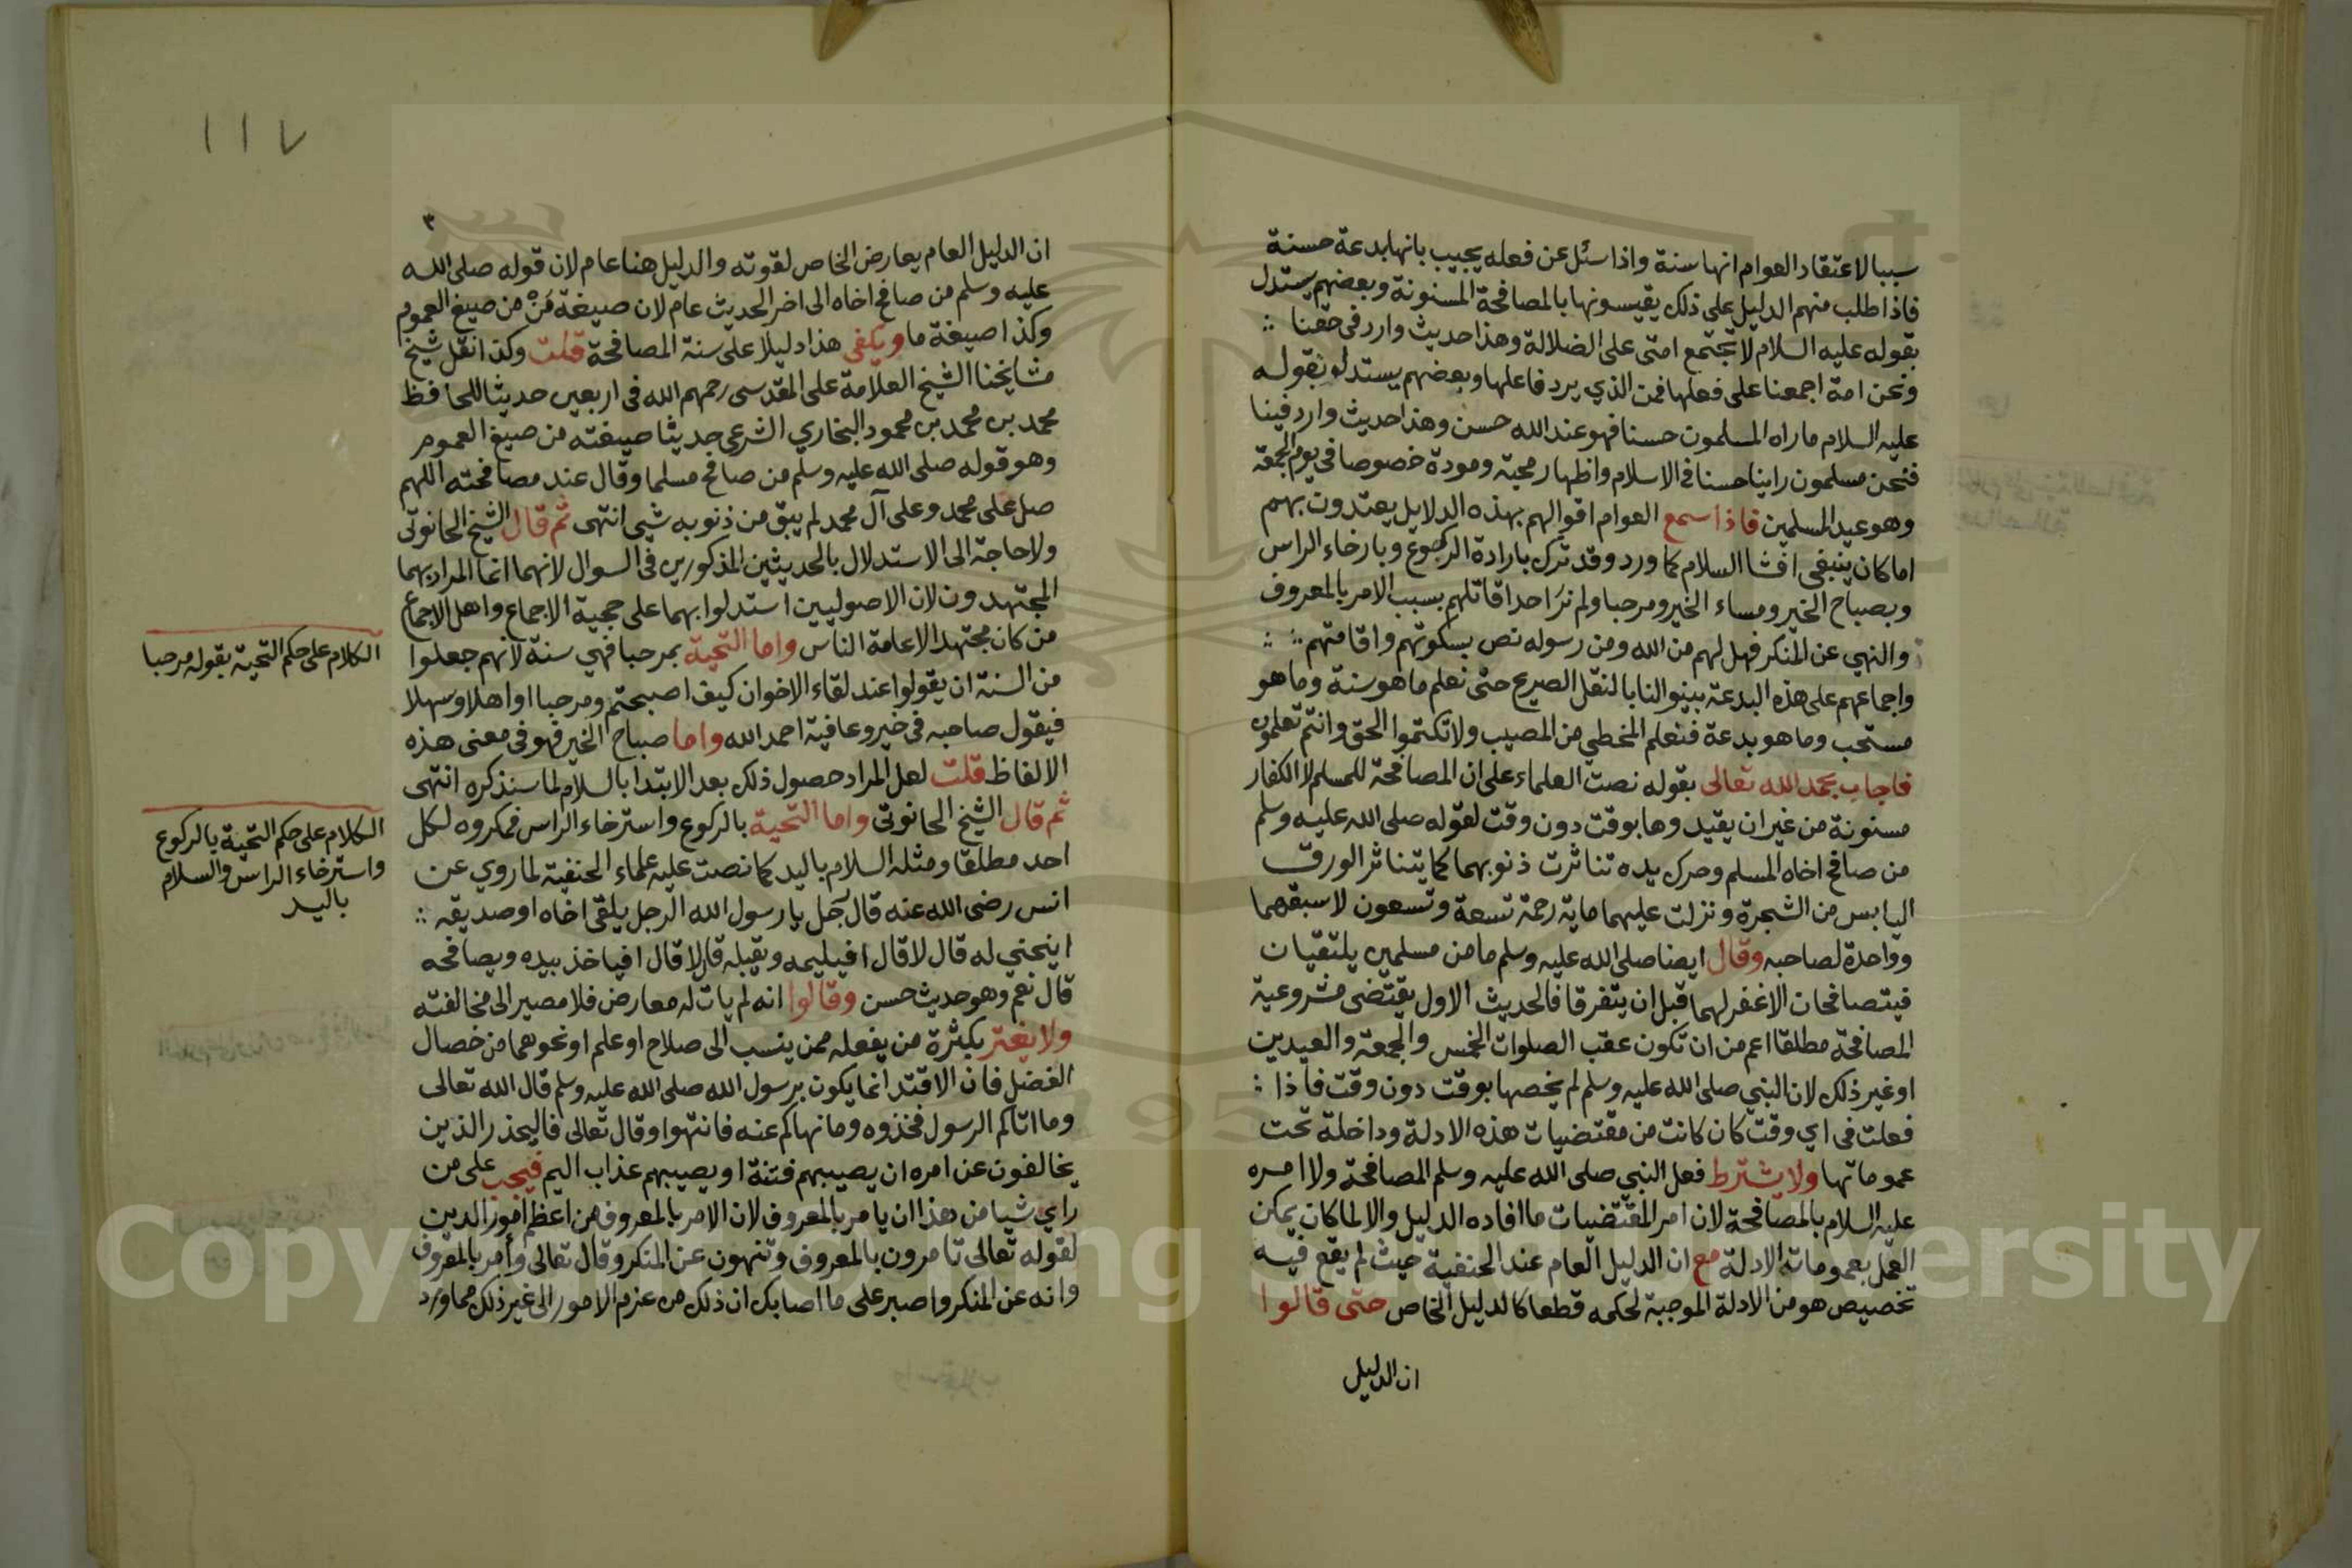 سببا لاعتقاد العوام انها سنة واذا سئل عن فعله يجيب بانها بدعة حسنة
فاذا طلب منهم الدليل على ذلك يقيسونها بالمصافحة المسنونة وبعضهم يستدل
بقوله عليه السلام لا تجتمع امتى على الضلالة وهذا حديث وارد في حقنا
ونحن امة اجمعنا على فعلها فمن الذي يرد فاعلها وبعضهم يستدلو بقوله
عليه السلام ماراه المسلمون حسنا فهو عند الله حسن وهذا حديث وارد فينا
فنحن مسلمون راينا حسنا في الاسلام واظهار محبته ومودة خصوصا في يوم الجمعة
وهو عيد المسلمين فاذا سمع العوام اقوالهم بهذه الدلايل يعتدون بهم
اما كان ينبغي افشا السلام كما ورد وقد ترك بارادة الركوع وبارخاء الراس
وبصباح الخير ومساء الخير ومرحبا ولم نر احدا قاتلهم بسبب الامر بالمعروف
والنهي عن المنكر فهل لهم من الله ومن رسوله نص بسكوتهم واقامتهم
واجماعهم على هذه البدعة بينوا لنا بالنقل الصريح حتى نعلم ما هو سنة وما هو
مستحب وما هو بدعة فنعلم المخطي من المصيب ولا تكتموا الحق وانتم تعلمون
فاجاب بحمد الله تعالى بقوله نصت العلماء على ان المصافحة للمسلم لا الكفار
مسنونة من غير ان يقيدوها بوقت دون وقت لقوله صلى الله عليه وسلم
من صافح اخاه المسلم وحرك يده تناثرت ذنوبهما كما يتناثر الورق
اليابس من الشجرة ونزلت عليهما ماية رحمة تسعة وتسعون لاسبقهما
وواحدة لصاحبه وقال ايضا صلى الله عليه وسلم ما من مسلمين يلتقيان
فيتصافحان الاغفر لهما قبل ان يتفرقا فالحديث الاول يقتضى مشروعية
المصافحة مطلقا اعم من ان تكون عقب الصلوات الخمس والجمعة والعيدين
او غير ذلك لان النبي صلى الله عليه وسلم لم يخصها بوقت دون وقت فاذا
فعلت في اي وقت كان كانت من مقتضيات هذه الادلة وداخلة تحت
عموماتها ولا يشترط فعل النبي صلى الله عليه وسلم المصافحة ولا امره
عليه السلام بالمصافحة لان امر المقتضيات ما افاده الدليل والا لما كان يمكن
العمل بعمومات الادلة مع ان الدليل العام عند الحنفية حيث لم يقع فيه
تخصيص هو من الادلة الموجبة لحكمه قطعا كالدليل الخاص حتى قالوا
ان الدليل
١١٧
٣
ان الدليل العام يعارض الخاص لقوته والدليل هنا عام لان قوله صلى الله
عليه وسلم من صافح اخاه الى اخر الحديث عام لان صيغة مَنْ من صيغ العموم
وكذا صيغة ما ويكفى هذا دليلا على سنة المصافحة قلت وكذا نقل شيخ
مشايخنا الشيخ العلامة على المقدسى رحمهم الله في اربعين حديثا للحافظ
محمد بن محمد بن محمود البخاري الشرعى حديثا صيغته من صيغ العموم
وهو قوله صلى الله عليه وسلم من صافح مسلما وقال عند مصافحته اللهم
صل على محمد وعلى آل محمد لم يبق من ذنوبه شيى انتهى ثم قال الشيخ الحانوتى
ولا حاجة الى الاستدلال بالحديثين المذكورين في السوال لانهما انما المراد بهما
المجتهدون لان الاصوليين استدلوا بهما على حجية الاجماع واهل الاجماع
من كان مجتهدا لا عامة الناس واما التحية بمرحبا فهي سنة لانهم جعلوا
من السنة ان يقولوا عند لقاء الاخوان كيف اصبحتم ومرحبا او اهلا وسهلا
فيقول صاحبه في خير وعافية احمد الله واما صباح الخير فهو في معنى هذه
الالفاظ قلت لعل المراد حصول ذلك بعد الابتدا بالسلام لما سنذكره انتهى
ثم قال الشيخ الحانوتى واما التحية بالركوع واسترخاء الراس فمكروه لكل
احد مطلقا ومثله السلام باليد كما نصت عليه علماء الحنفية لما روي عن
انس رضى الله عنه قال رجل يا رسول الله الرجل يلقى اخاه او صديقه
اينحني له قال لا قال افيلتزمه ويقبله قال لا قال افياخذ بيده ويصافحه
قال نعم وهو حديث حسن وقالوا انه لم يات له معارض فلا مصير الى مخالفته
ولا يغتر بكثرة من يفعله ممن ينسب الى صلاح او علم او نحوهما من خصال
الفضل فان الاقتدا انما يكون برسول الله صلى الله عليه وسلم قال الله تعالى
وما اتاكم الرسول فخذوه وما نهاكم عنه فانتهوا وقال تعالى فاليحذر الذين
يخالفون عن امره ان يصيبهم فتنة او يصيبهم عذاب اليم فيجب على من
راي شيا من هذا ان يامر بالمعروف لان الامر بالمعروف من اعظم امور الدين
لقوله تعالى تامرون بالمعروف وتنهون عن المنكر وقال تعالى وأمر بالمعروف
وانه عن المنكر واصبر على ما اصابك ان ذلك من عزم الامور الى غير ذلك مما ورد
الكلام على حكم التحية بقوله مرحبا
الكلام على حكم التحية بالركوع
واسترخاء الراس والسلام
باليد